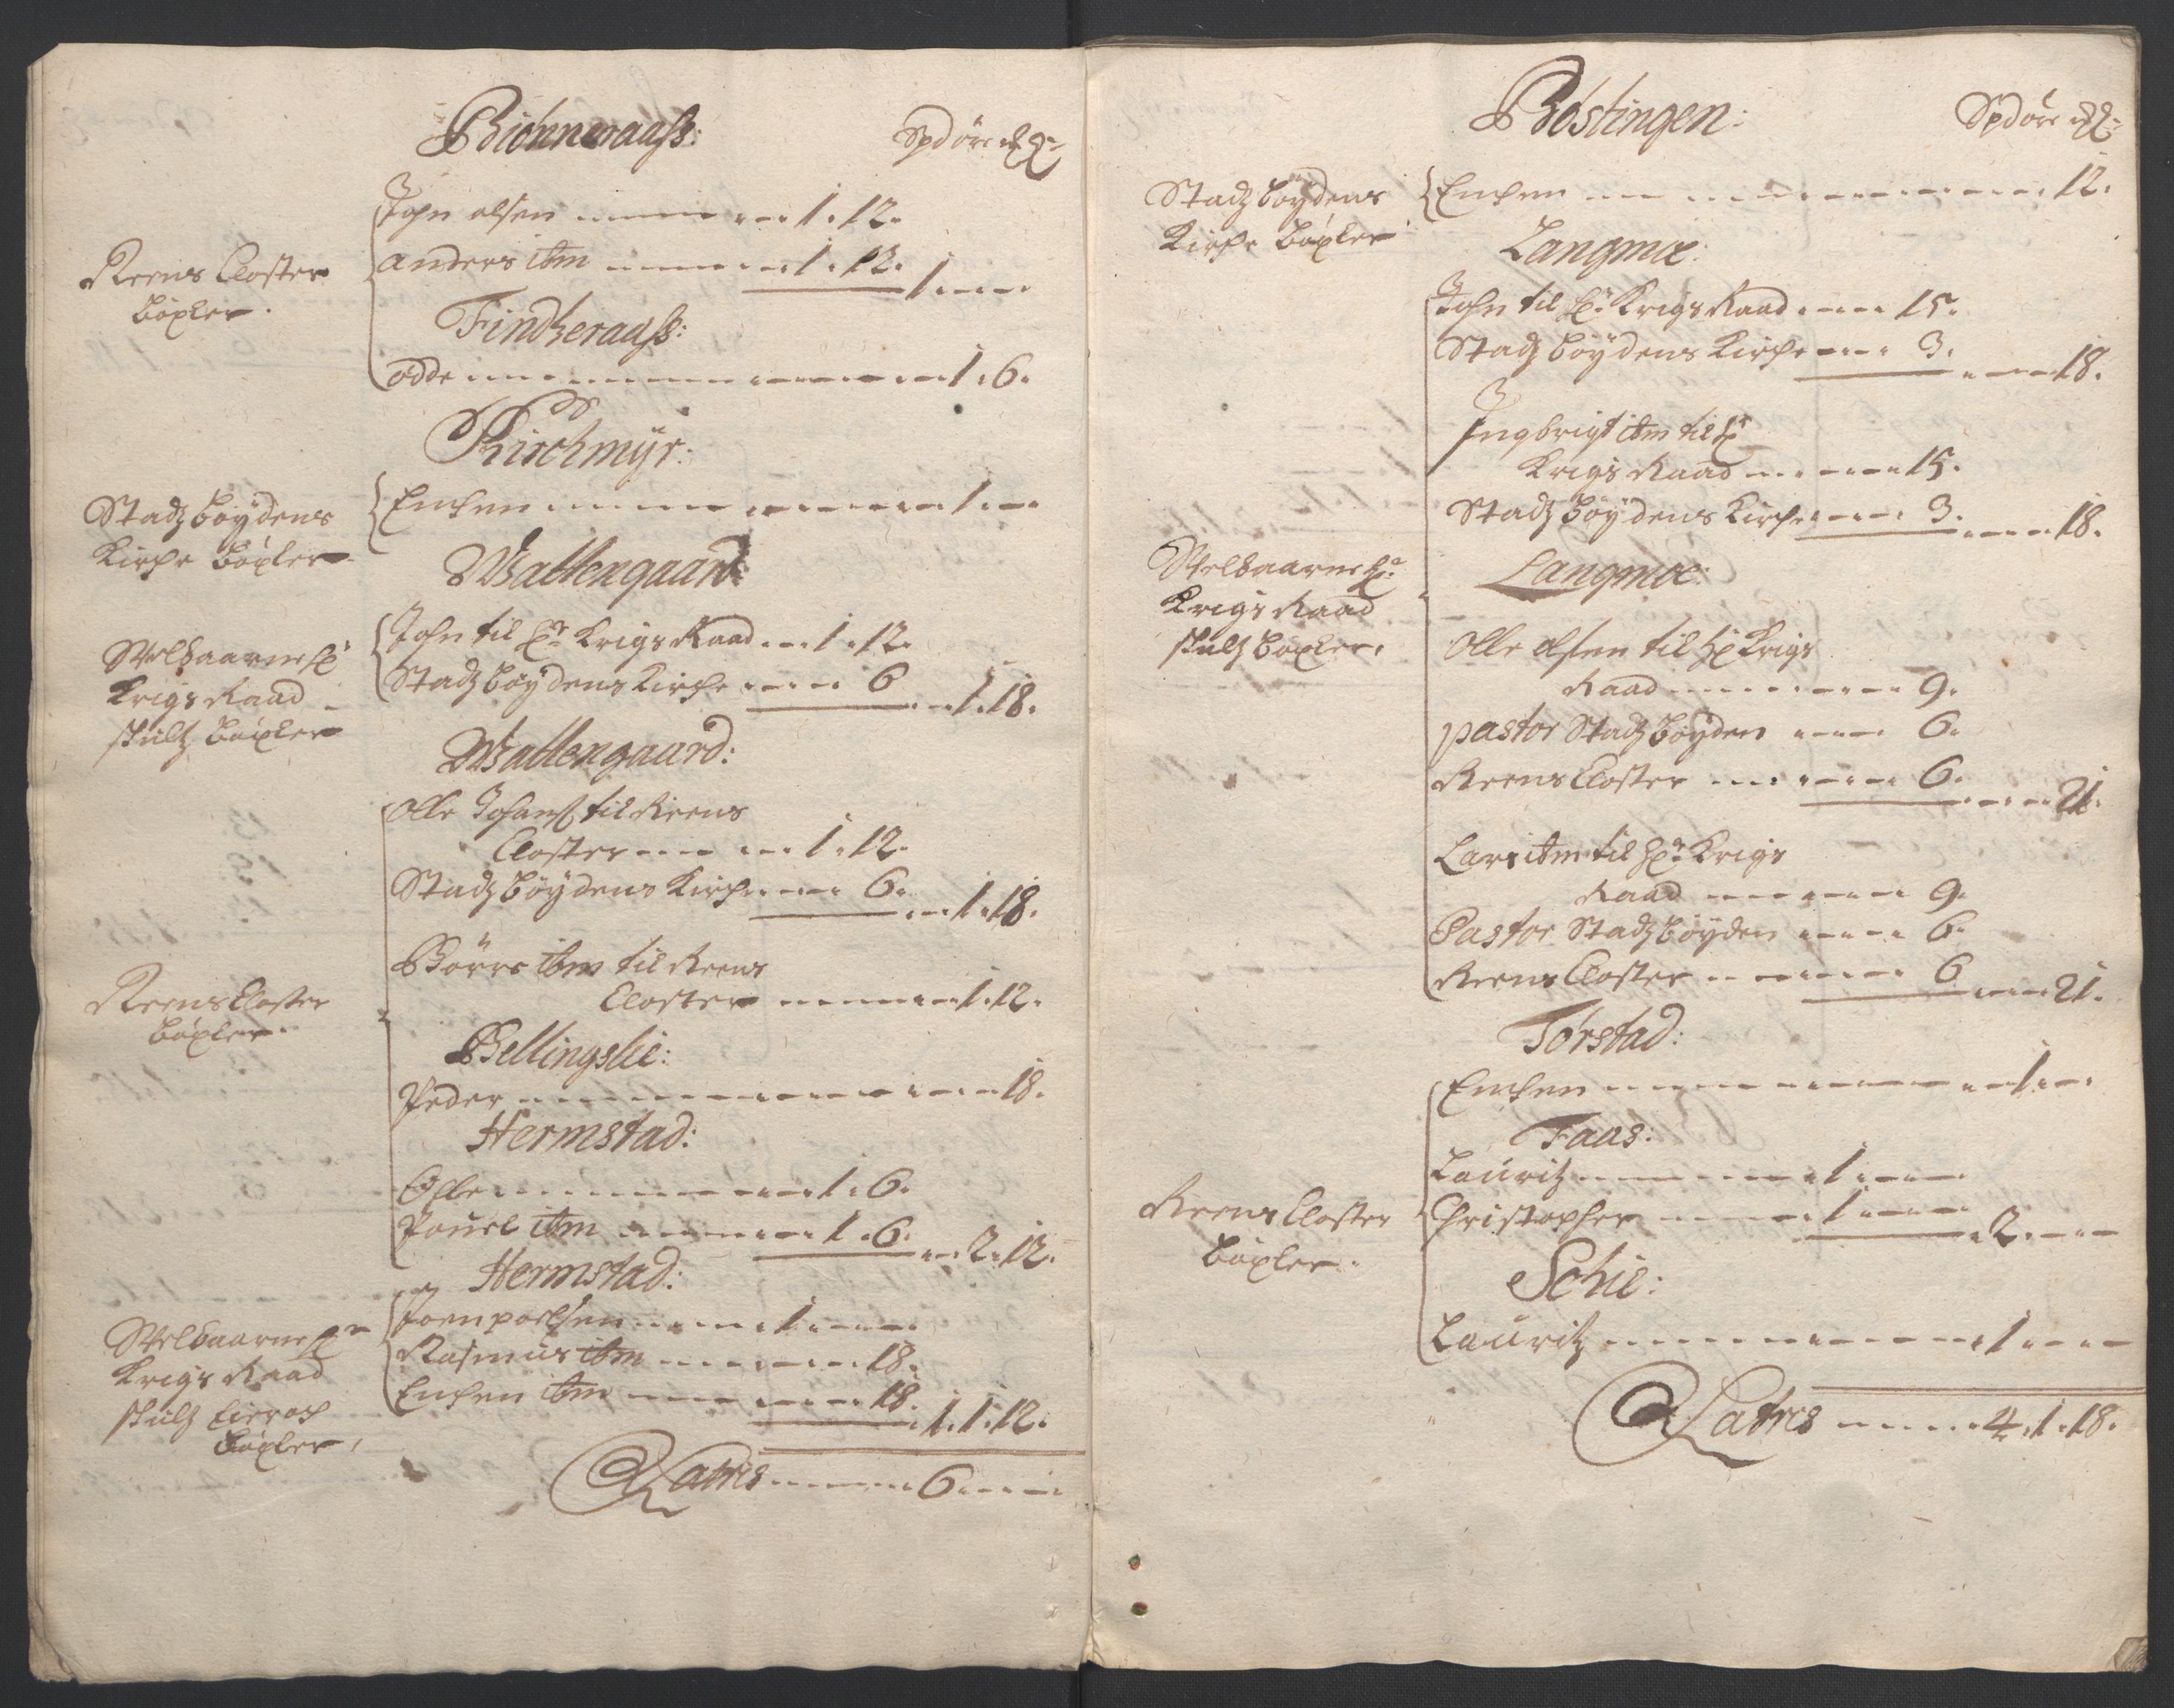 Biönneraass:
Spd öre
John olsen 1. 12.
Reens Closter
böxler.
Anders ibm 1. 12. 1
Findzeraass:
Odde 1. 6.
Kirchmÿr:
Stadzböÿdens
Kirche böxler
Enchen 1
Wattengaard
Welbaarne Hr
Krigs Raad
skultz böxler
John til Hr Krigs Raad 1. 12.
Stadzböÿdens Kirche 6 1. 18.
Wattengaard:
Olle Johans: til Reens
Closter 1. 12.
Stadzböÿdens Kirche 6. 1. 18.
Reens Closter
böxler.
Börre ibm til Reens
Closter 1. 12.
Bellingslie:
Peder 18.
Hermstad:
Olle 1. 6.
Pouel ibm 1. 6. 2. 12.
Hermstad:
Welbaarne Hr
Krigs Raad
skultz
böxler,
Joen poelsen 1
Rasmus ibm 18.
Enchen ibm 18. 1. 1. 12.
Latris 6
Böstingen:
Spd öre
Stadzböÿdens
Kirche böxler
Enchen 12.
Langmoe:
John til Hr Krigs Raad 15.
Stadzböÿdens Kirche 3. 18.
Ingbrigt ibm til Hr
Krigs Raad 15.
Stadzböÿdens Kirche 3. 18.
Welbaarne Hr
Krigs Raad
skultz böxler,
Langmoe:
Olle olsen til Hr Krigs
Raad 9.
pastor Stadzböÿden 6.
Reens Closter 6. 21.
Lars ibm til Hr Krigs
Raad 9.
Pastor Stadzböÿden 6.
Reens Closter 6 21.
Torstad:
Enchen 1
Faas:
Reens Closter
böxler.
Lauritz 1
Christopher 1 2
Schie:
Lauritz 1
Latris 4. 1. 18.